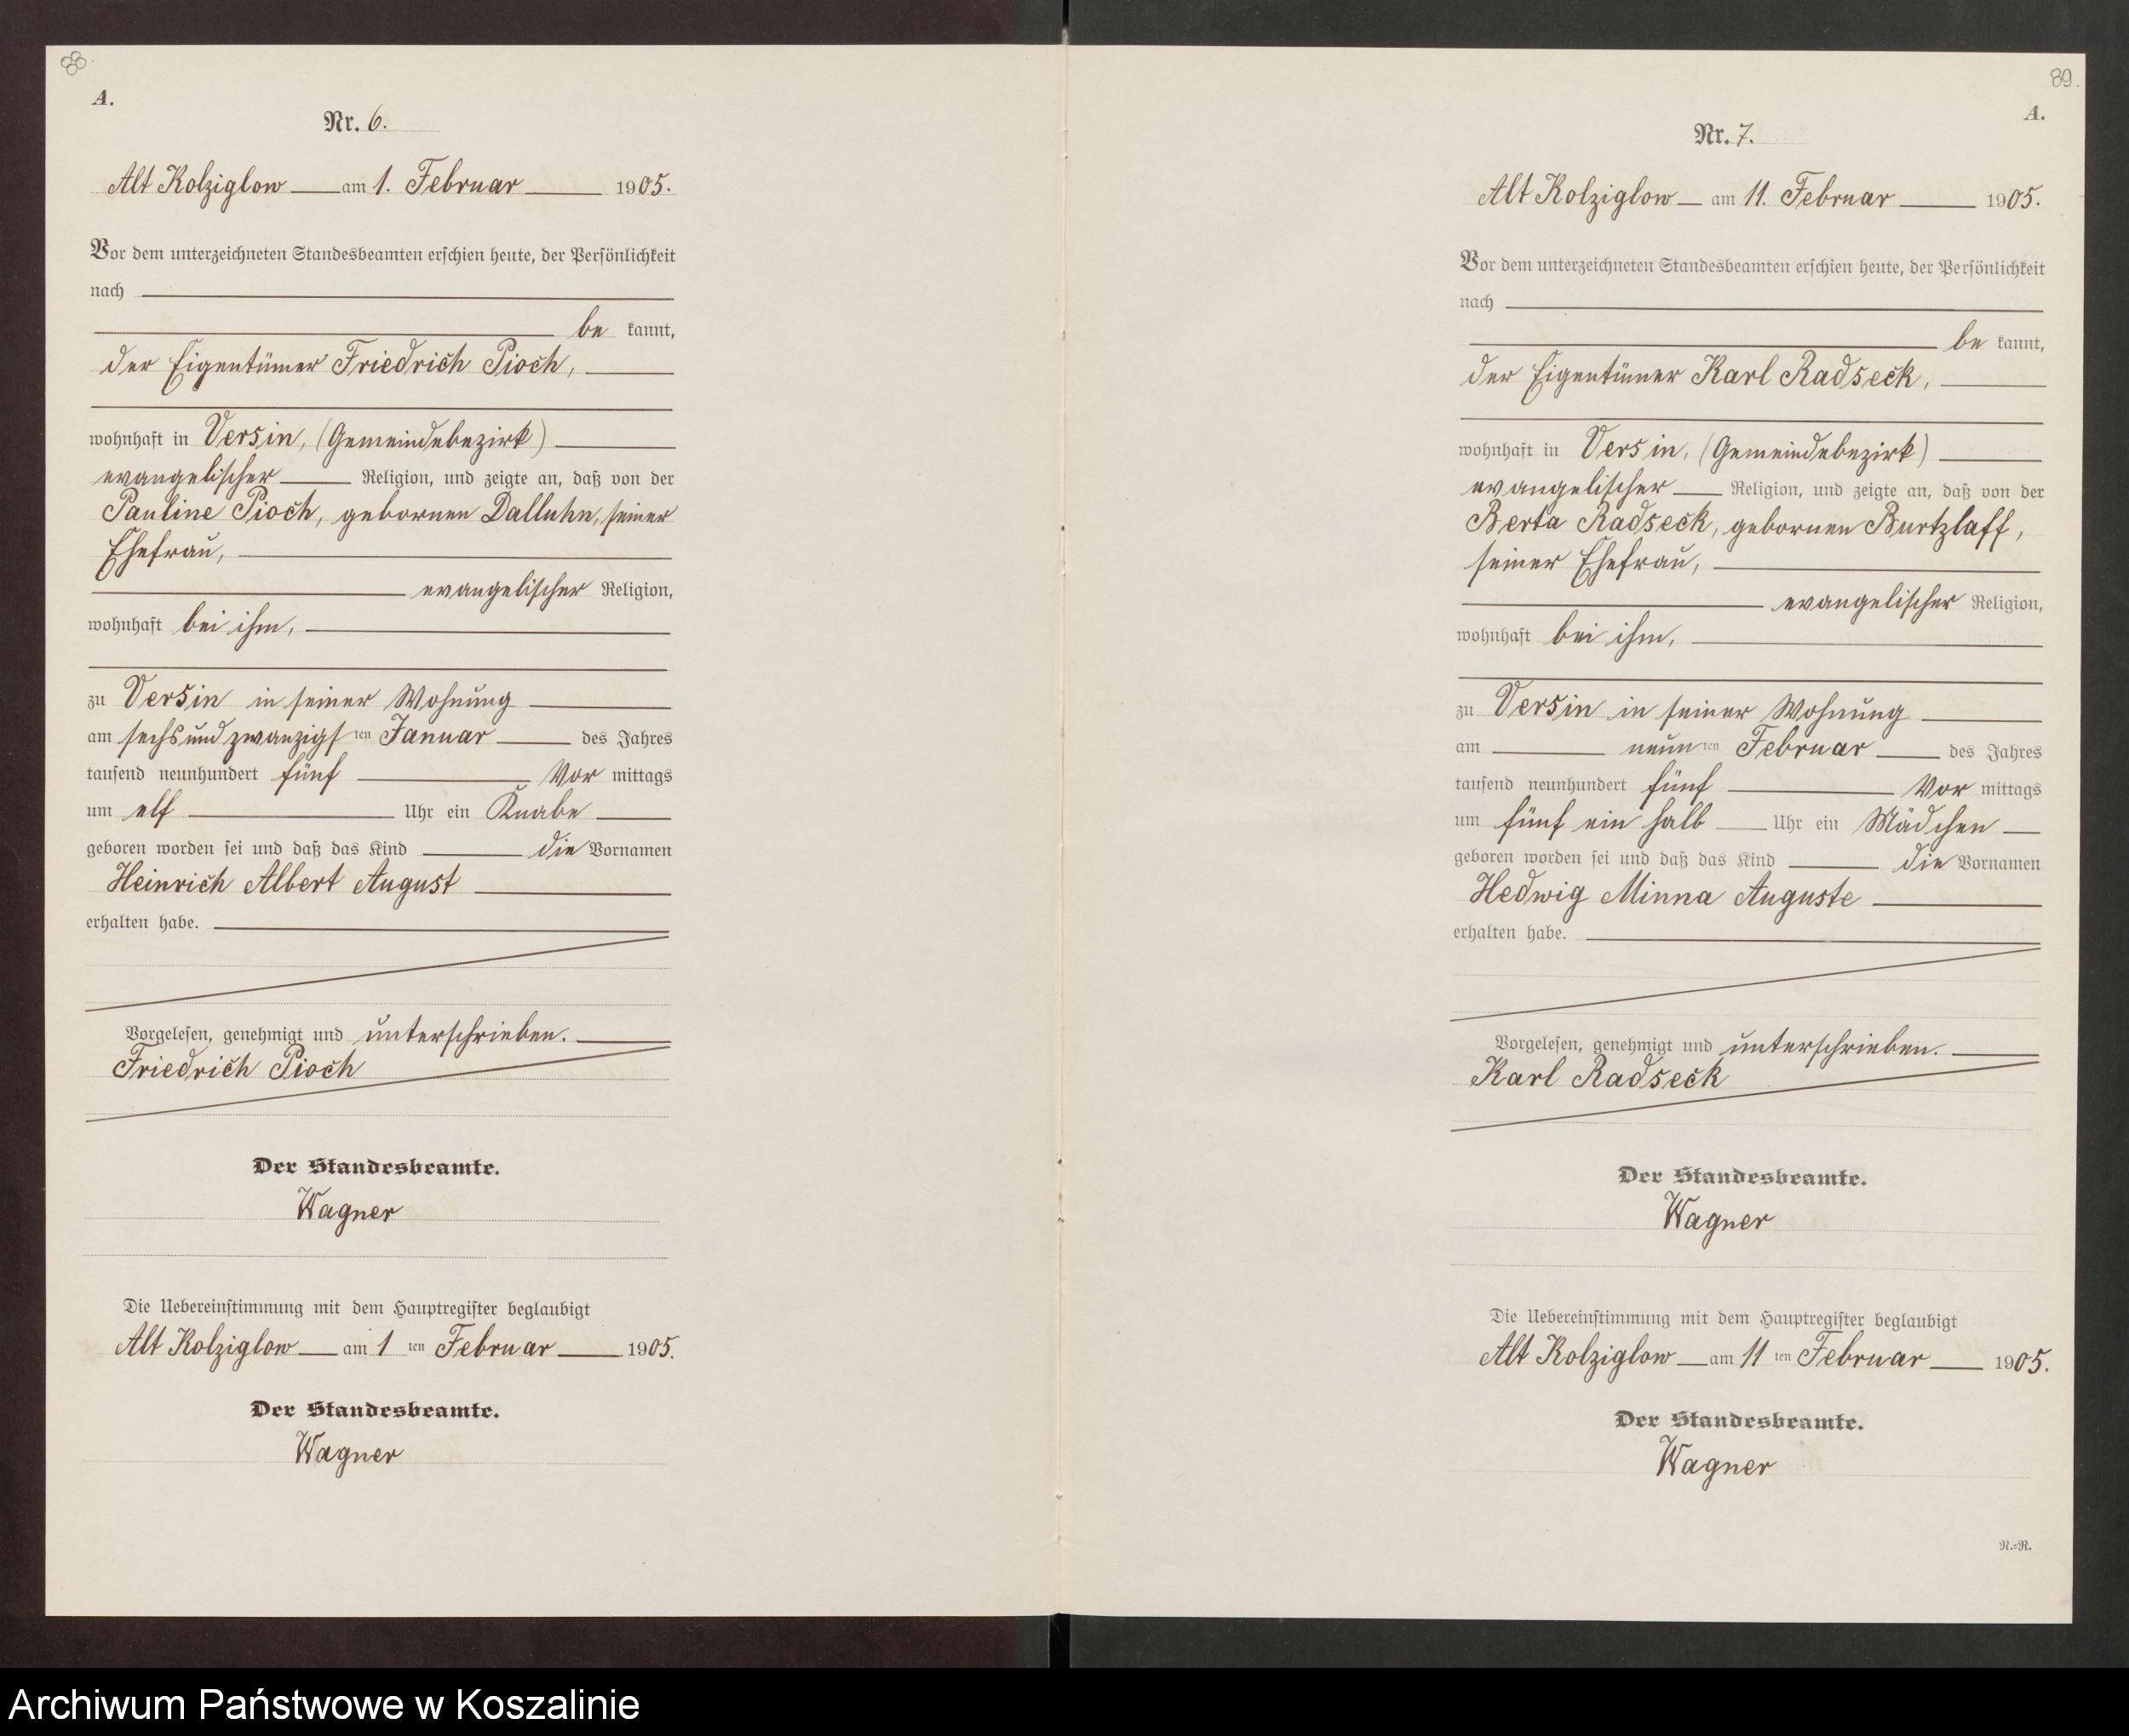 88
A.
Nr. 6.
Alt Kolziglow am 1. Februar 1905.
Vor dem unterzeichneten Standesbeamten erschien heute, der Persönlichkeit
nach
be kannt,
der Eigentümer Friedrich Pioch,
wohnhaft in Versin, (Gemeindebezirk)
evangelischer Religion, und zeigte an, daß von der
Pauline Pioch, gebornen Dalluhn, seiner
Ehefrau,
evangelischer Religion,
wohnhaft bei ihm,
zu Versin in seiner Wohnung
am sechsundzwanzigsten Januar des Jahres
tausend neunhundert fünf Vor mittags
um elf Uhr ein Knabe
geboren worden sei und daß das Kind die Vornamen
Heinrich Albert August
erhalten habe.
Vorgelesen, genehmigt und unterschrieben.
Friedrich Pioch
Der Standesbeamte.
Wagner
Die Uebereinstimmung mit dem Hauptregister beglaubigt
Alt Kolziglow am 1 ten Februar 1905.
Der Standesbeamte.
Wagner
89.
A.
Nr. 7.
Alt Kolziglow am 11. Februar 1905.
Vor dem unterzeichneten Standesbeamten erschien heute, der Persönlichkeit
nach
be kannt,
der Eigentümer Karl Radseck,
wohnhaft in Versin, (Gemeindebezirk)
evangelischer Religion, und zeigte an, daß von der
Berta Radseck, gebornen Burtzlaff,
seiner Ehefrau,
evangelischer Religion,
wohnhaft bei ihm,
zu Versin in seiner Wohnung
am neunten Februar des Jahres
tausend neunhundert fünf Vor mittags
um fünf ein halb Uhr ein Mädchen
geboren worden sei und daß das Kind die Vornamen
Hedwig Minna Auguste
erhalten habe.
Vorgelesen, genehmigt und unterschrieben.
Karl Radseck
Der Standesbeamte.
Wagner
Die Uebereinstimmung mit dem Hauptregister beglaubigt
Alt Kolziglow am 11 ten Februar 1905.
Der Standesbeamte.
Wagner
N.=R.
Archiwum Państwowe w Koszalinie